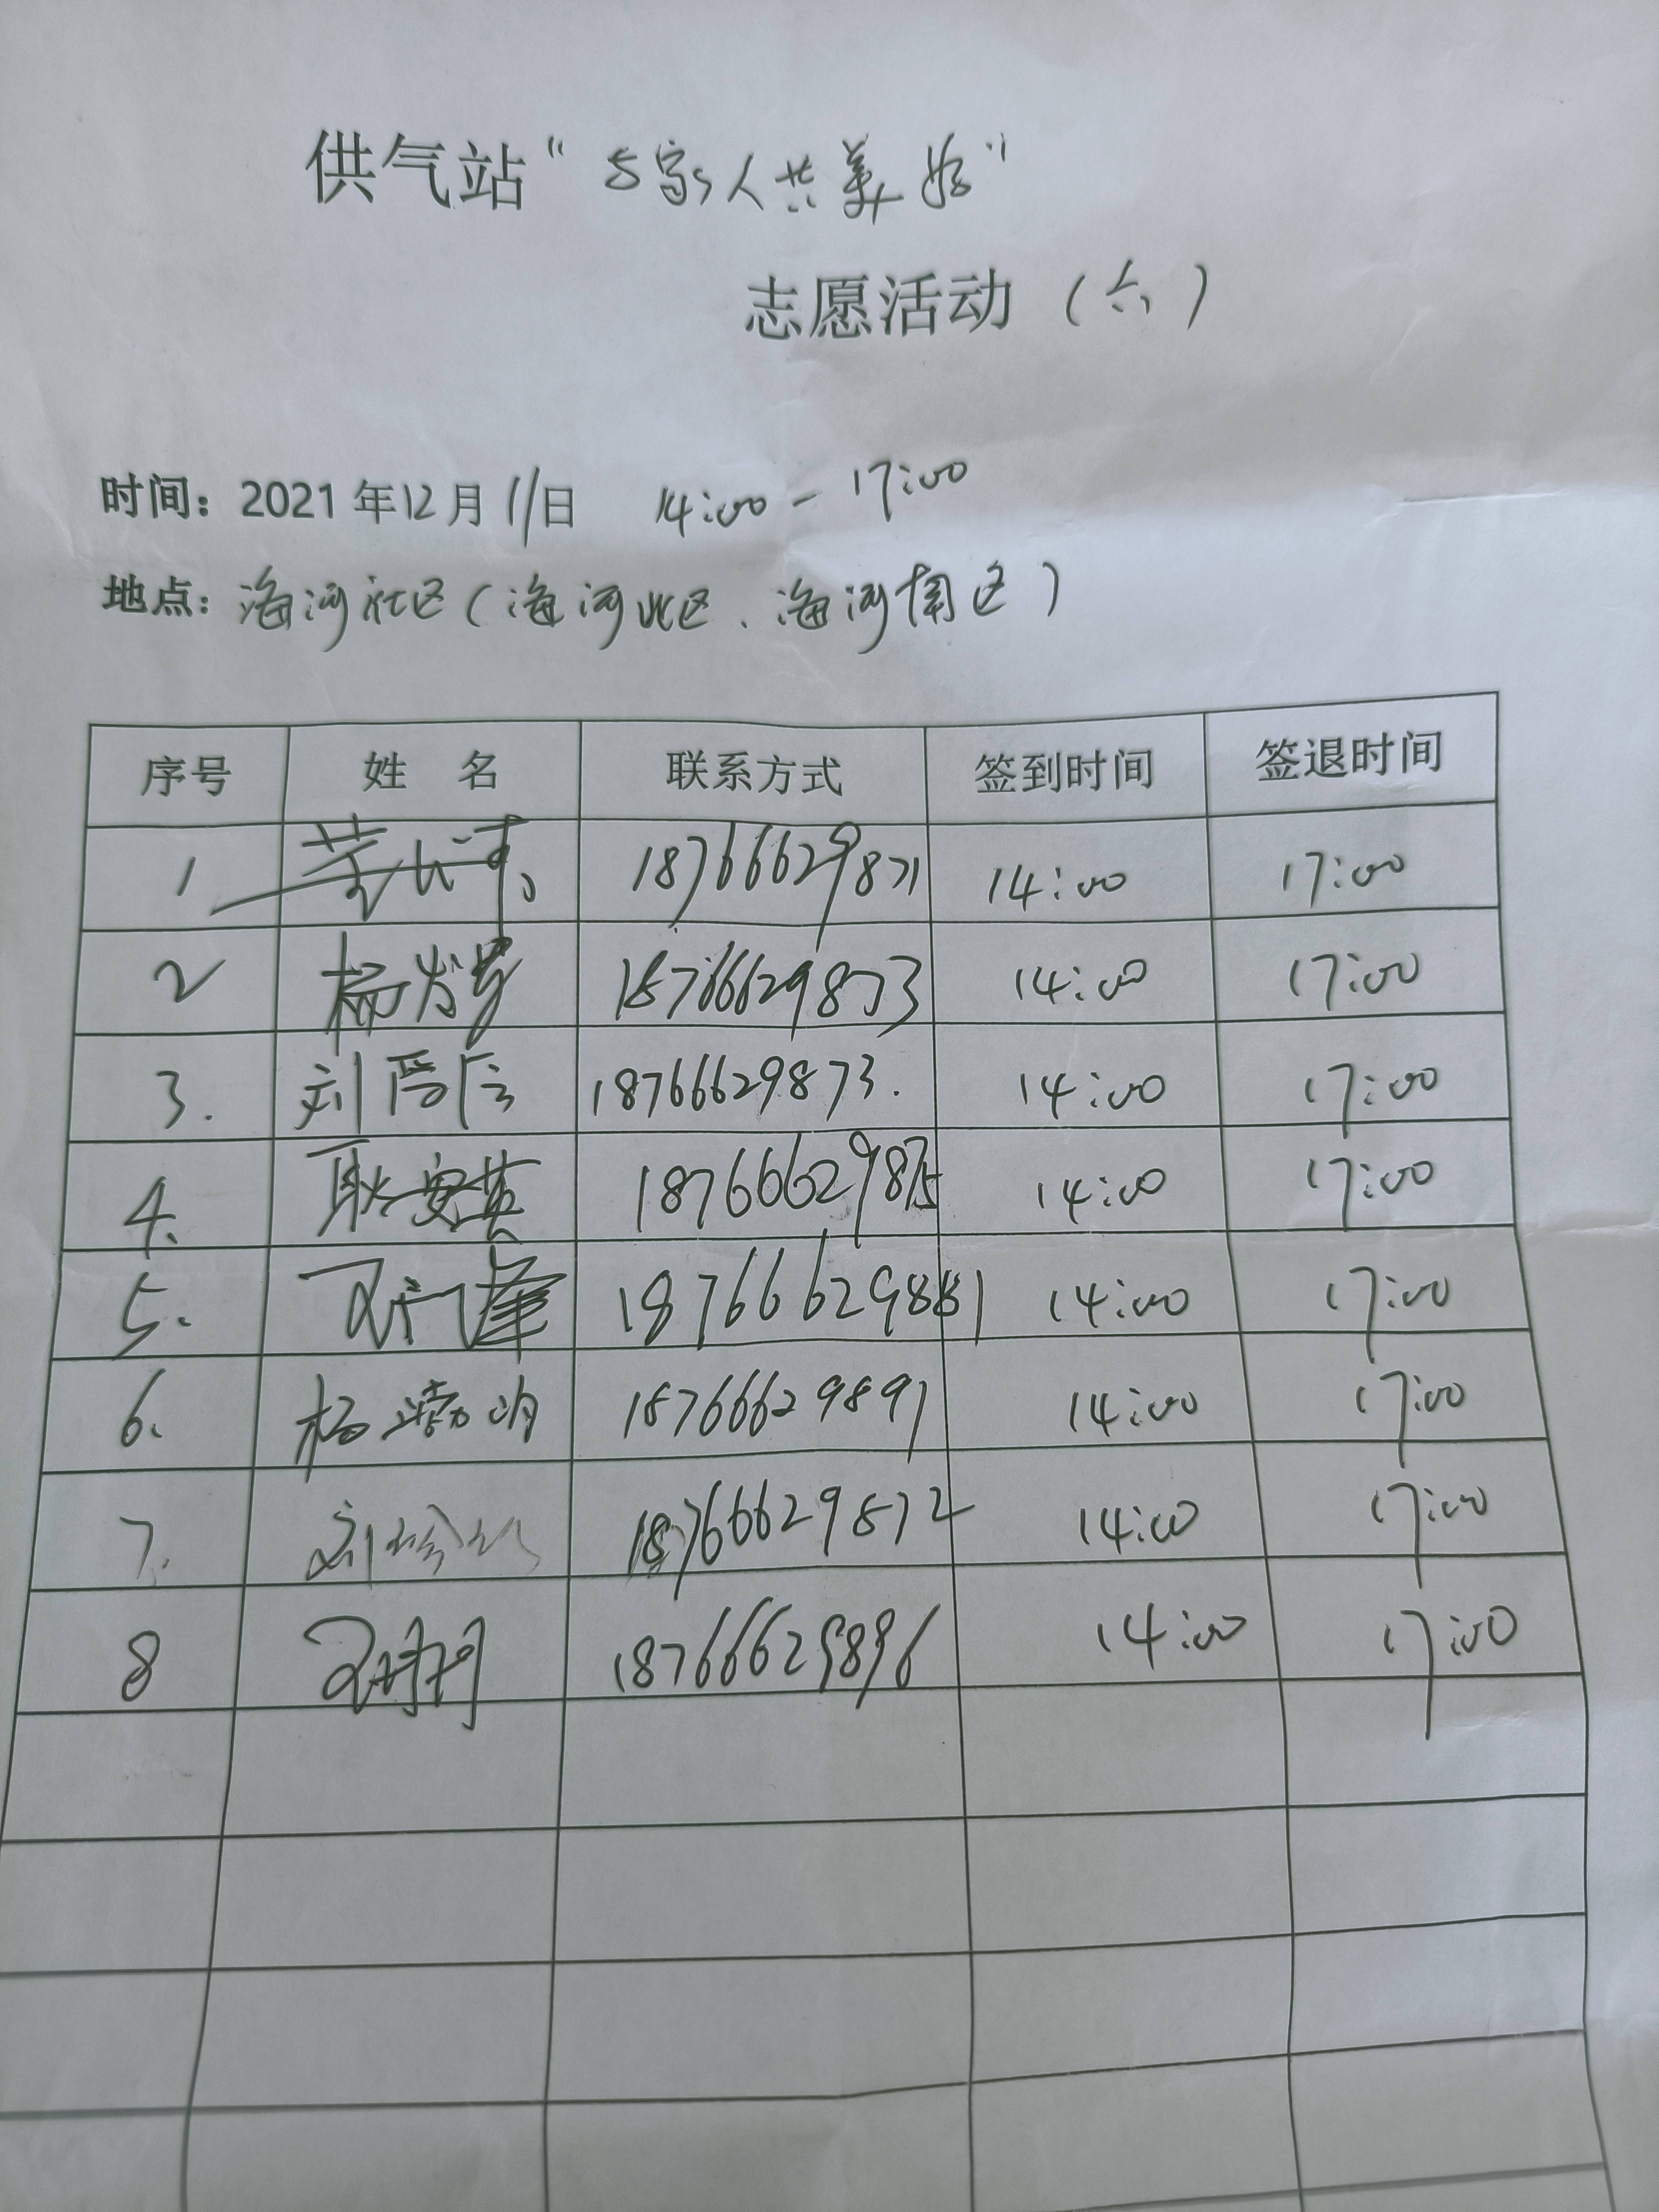 供气站“与家人共美好”
志愿活动（六）
时间：2021年12月11日 14:00-17:00
地点：海河社区（海河北区、海河南区）
序号 姓名 联系方式 签到时间 签退时间
1 18766629871 14:00 17:00
2 18766629873 14:00 17:00
3. 18766629873. 14:00 17:00
4. 耿安英 18766629875 14:00 17:00
5. 18766629881 14:00 17:00
6. 杨 18766629891 14:00 17:00
7. 刘 18766629872 14:00 17:00
8 18766629896 14:00 17:00